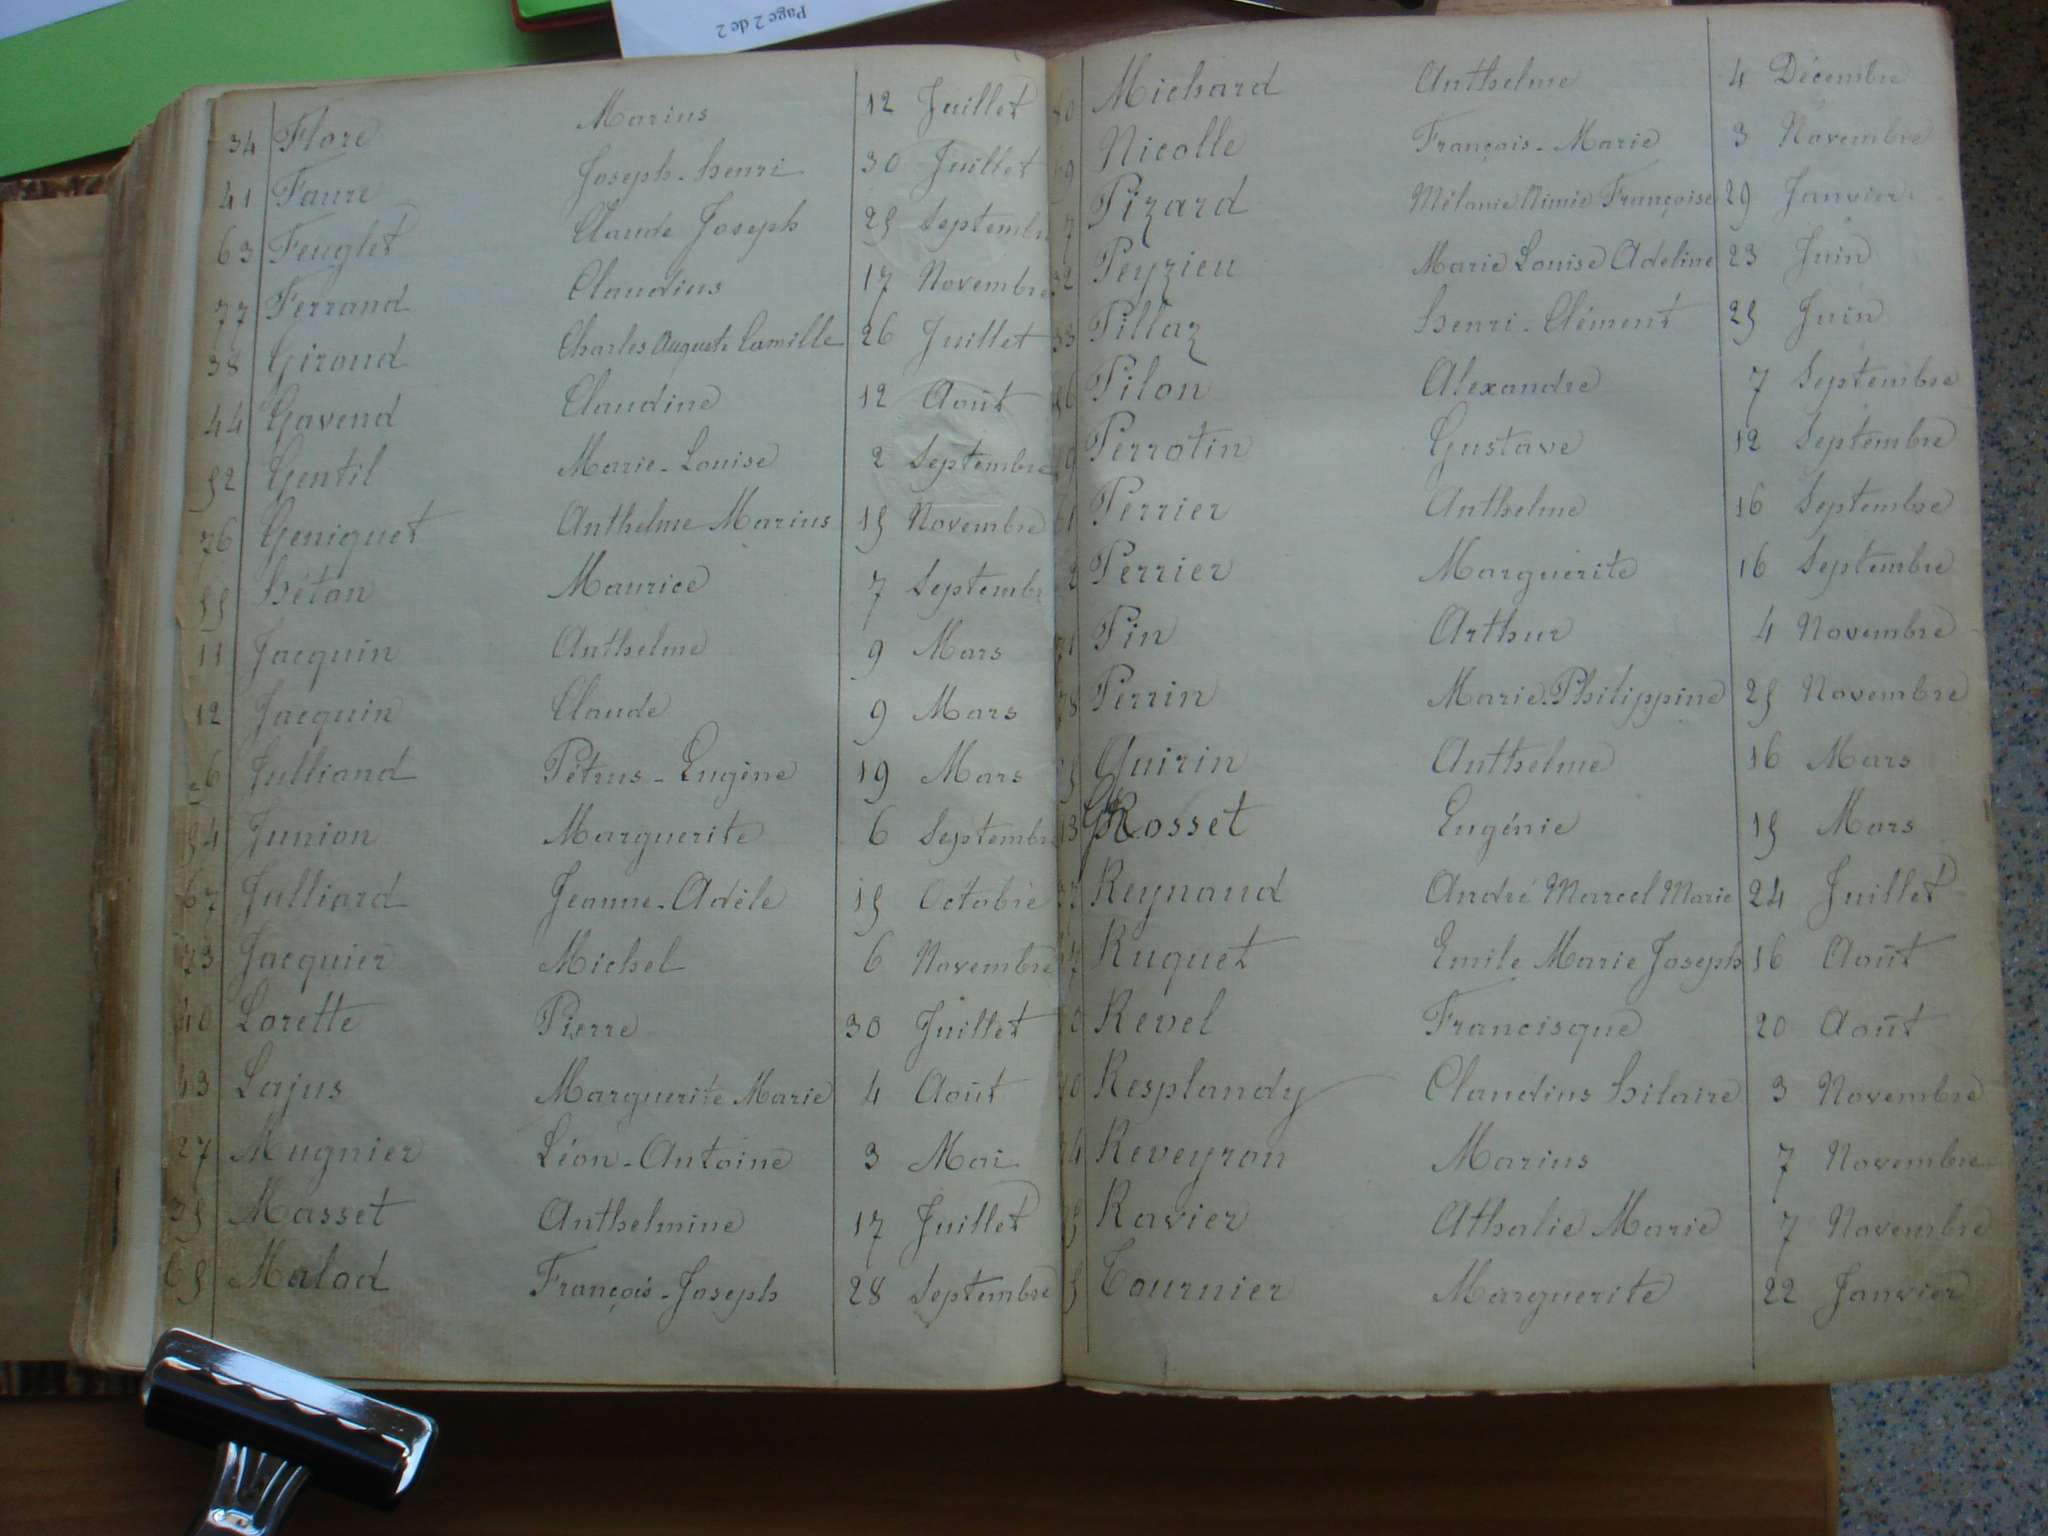 Page 2 de 2
34 Flore Marius 12 Juillet
41 Faure Joseph-henri 30 Juillet
63 Feuglet Claude Joseph 25 Septembre
77 Ferrand Claudius 17 Novembre
38 Giroud Charles Auguste Camille 26 Juillet
44 Gavend Claudine 12 Août
52 Gentil Marie-Louise 2 Septembre
76 Geniquet Anthelme Marius 15 Novembre
55 hétan Maurice 7 Septembre
11 Jacquin Anthelme 9 Mars
12 Jacquin Claude 9 Mars
Julliand Pétrus-Eugène 19 Mars
54 Junion Marguerite 6 Septembre
67 Julliard Jeanne-Adèle 15 Octobre
73 Jacquier Michel 6 Novembre
40 Lorette Pierre 30 Juillet
43 Lajus Marguerite Marie 4 Août
27 Mugnier Léon-Antoine 3 Mai
35 Masset Anthelmine 17 Juillet
65 Malod François-Joseph 28 Septembre
Michard Anthelme 4 Décembre
Nicolle François-Marie 3 Novembre
7 Pizard Mélanie Aimée Françoise 29 Janvier
32 Peyzieu Marie Louise Adeline 23 Juin
33 Pillaz henri-Clément 25 Juin
56 Pilon Alexandre 7 Septembre
Perrotin Gustave 12 Septembre
61 Perrier Anthelme 16 Septembre
2 Perrier Marguerite 16 Septembre
71 Pin Arthur 4 Novembre
78 Perrin Marie-Philippine 25 Novembre
Quirin Anthelme 16 Mars
13 Rosset Eugénie 15 Mars
37 Reynaud André Marcel Marie 24 Juillet
47 Ruquet Emile Marie Joseph 16 Août
Revel Francisque 20 Août
70 Resplandy Claudius hilaire 3 Novembre
74 Reveyron Marius 7 Novembre
Ravier Athalie Marie 7 Novembre
5 Tournier Marguerite 22 Janvier